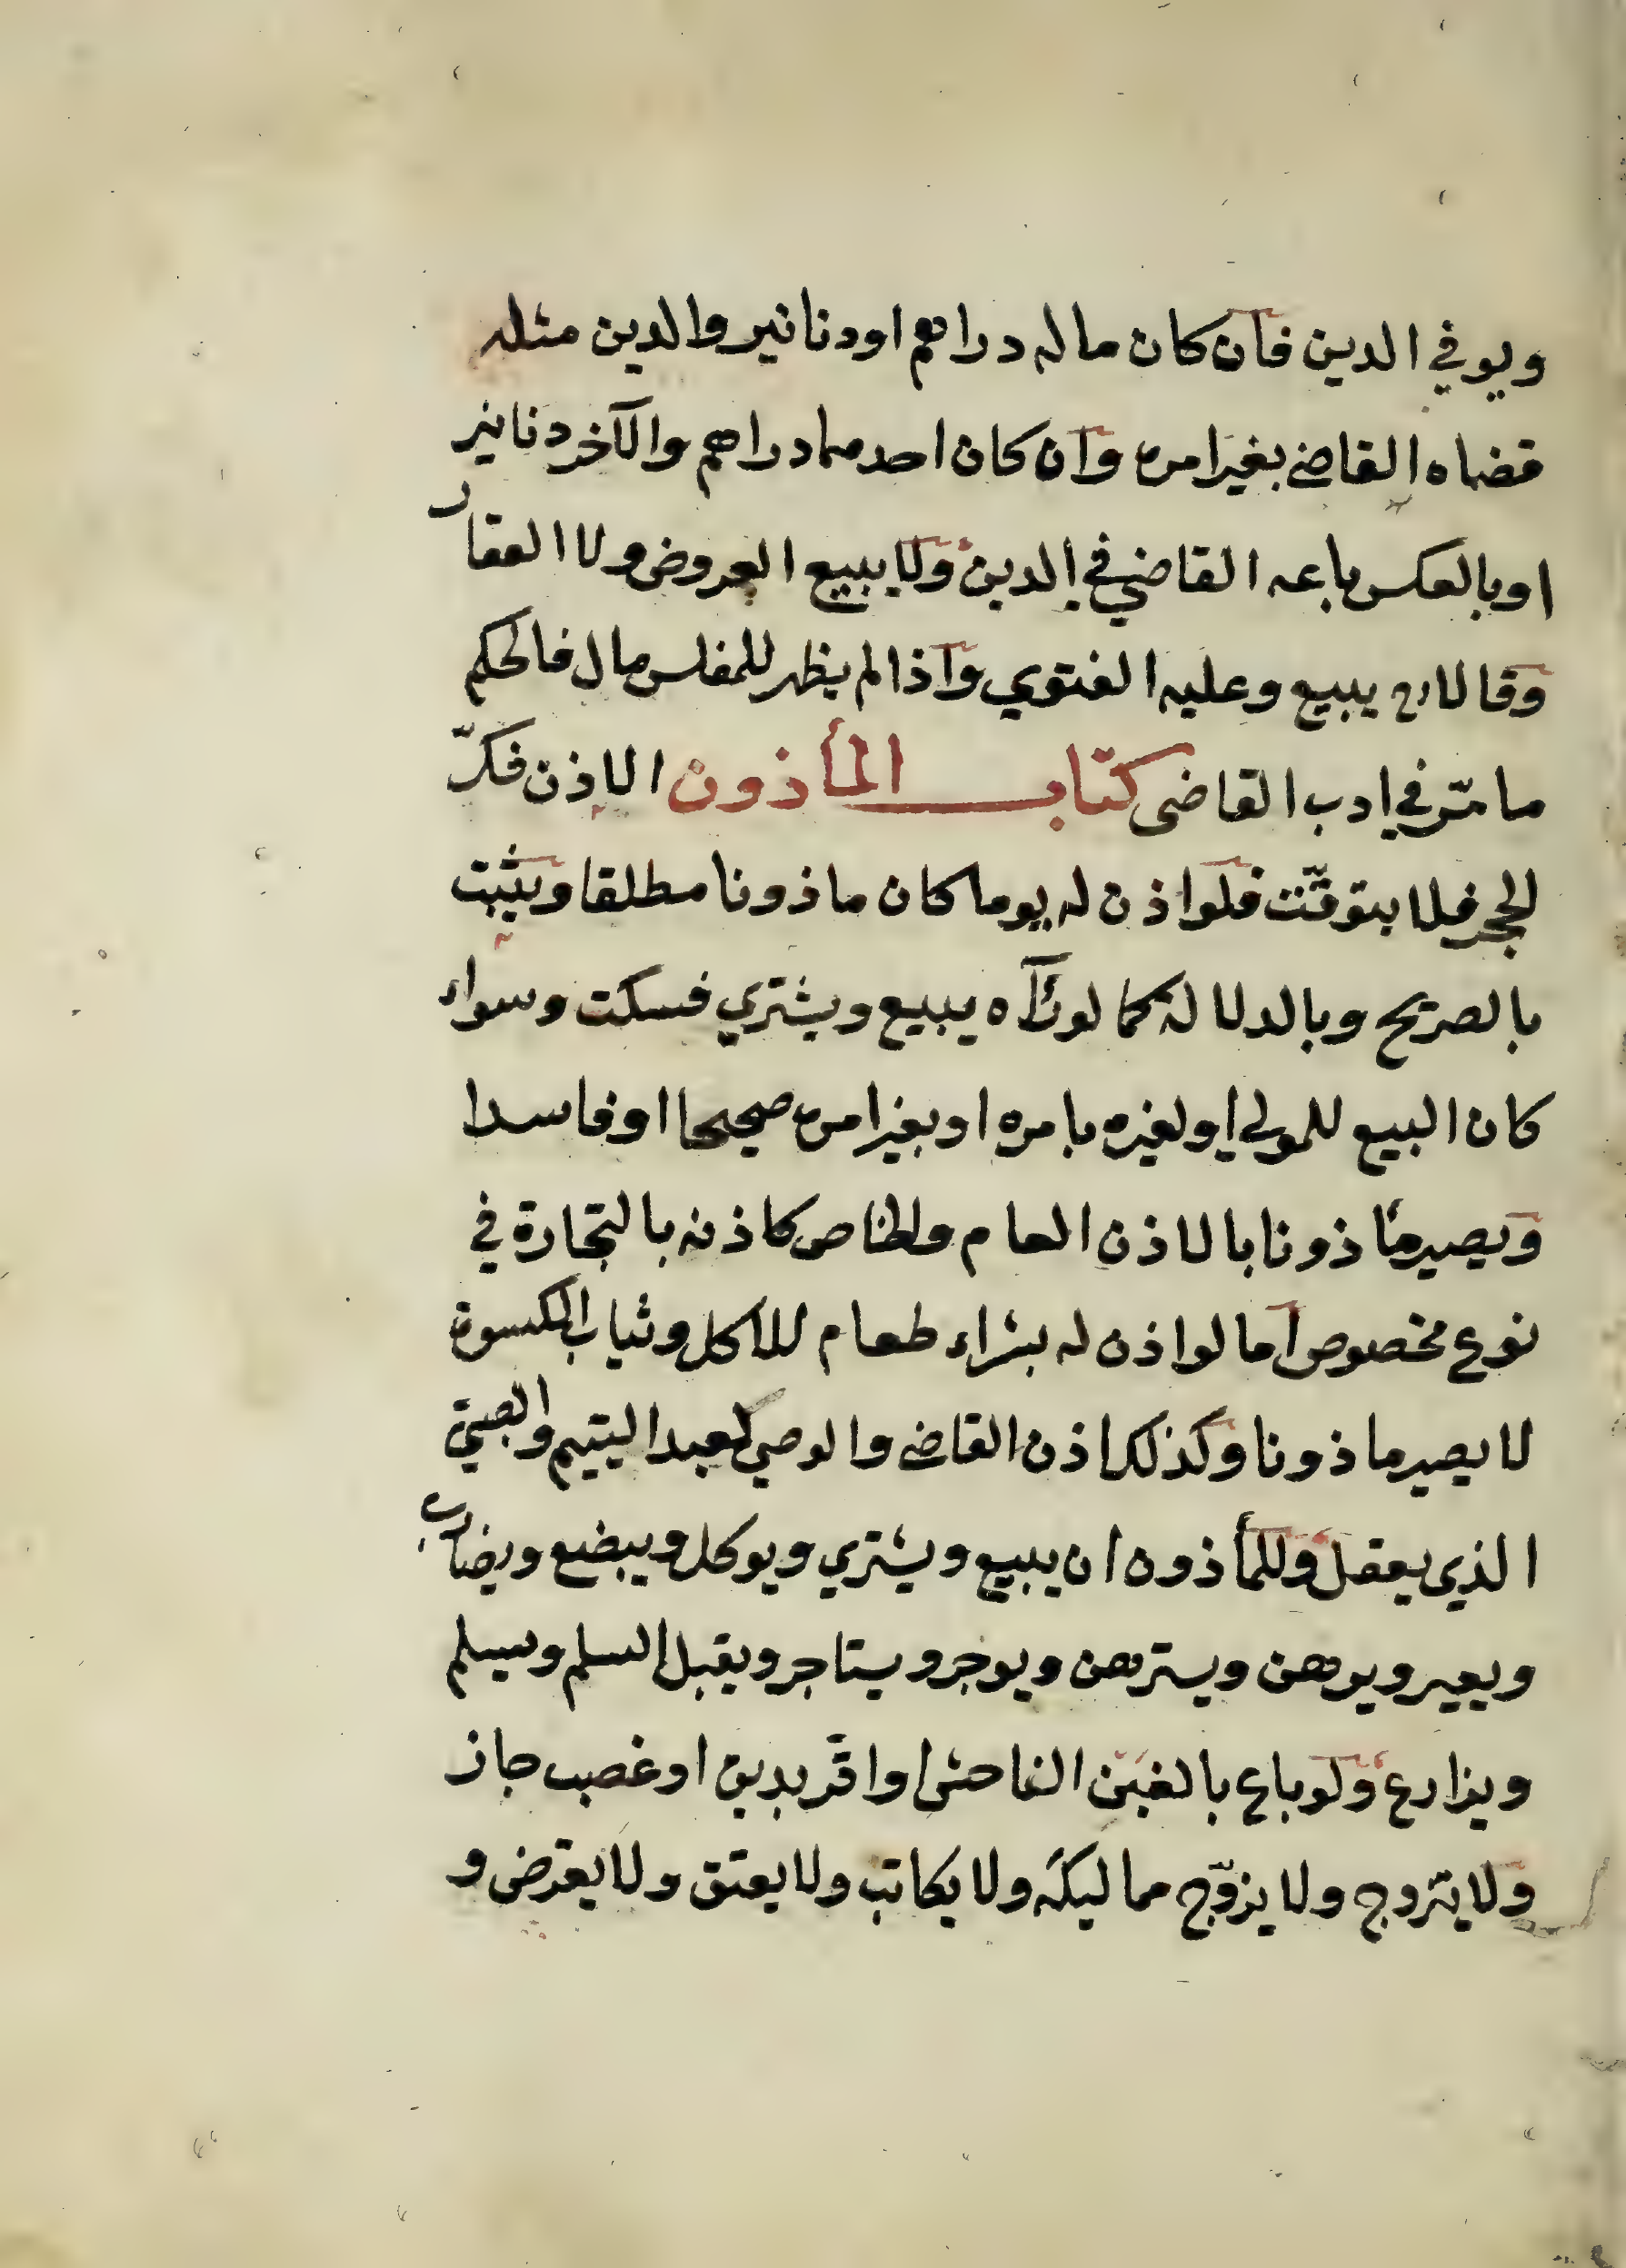 ويوفي الدين فان كان ماله دراهم او دنانير والدين مثله
قضاه القاضي بغير امره وان كان احدهما دراهم والآخر دنانير
او بالعكس باعه القاضي في الدين ولا يبيع العروض ولا العقار
وقالا يبيع وعليه الفتوي واذا لم يظهر للمفلس مال فالحكم
ما مرّ في ادب القاضى كتاب المأذون الاذن فكّ
الحجر فلا يتوقّت فلو اذن له يوما كان ماذونا مطلقا ويثبت
بالصريح وبالدلالة كما لو رآه يبيع ويشتري فسكت وسواء
كان البيع للمولي او لغيره بامره او بغير امره صحيحا او فاسدا
ويصير مأذونا بالاذن العام والخاص كاذنه بالتجارة في
نوع مخصوص اما لو اذن له بشراء طعام للاكل وثياب الكسوة
لا يصير ماذونا وكذلك اذن القاضي والوصي لعبد اليتيم والصبيّ
الذي يعقل وللمأذون ان يبيع ويشتري ويوكل ويبضع ويضارب
ويعير ويرهن ويسترهن ويوجر ويستاجر ويقبل السلم ويسلم
ويزارع ولو باع بالغبن الفاحش او اقرّ بدين او غصب جاز
ولا يتزوج ولا يزوّج مماليكه ولا يكاتب ولا يعتق ولا يقرض و